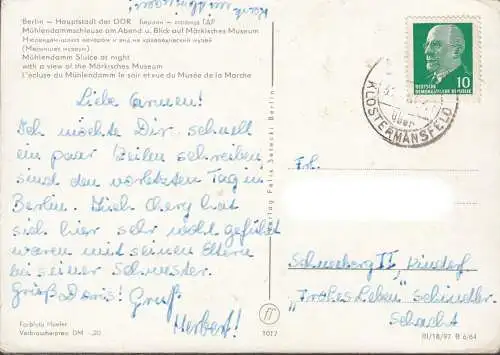 Berlin — Hauptstadt der DDR Берлин — столица ГДР
Mühlendammschleuse am Abend u. Blick auf Märkisches Museum
Мюлендаммшлюз вечером и вид на краеведческий музей
(Меркишес музеум)
Mühlendamm Sluice at night
with a view of the Märkisches Museum
L'écluse du Mühlendamm le soir et vue du Musée de la Marche
Liebe Carmen!
Ich möchte Dir schnell
ein paar Zeilen schreiben,
sind den vorletzten Tag in
Berlin. Dich hat
sich hier sehr wohl gefühlt
waren mit seinen Eltern
bei seiner Schwester.
Gruß Doris! Gruß
Herbert!
Farbfoto Hoeler
Verbraucherpreis DM -,20
Verlag Felix Setecki Berlin
1017
10
DEUTSCHE
DEMOKRATISCHE REPUBLIK
über
KLOSTERMANSFELD
Frl.
Schneeberg II, Kinderf
"Frohes Leben" Schindler-
Schacht
III/18/97 B 6/64